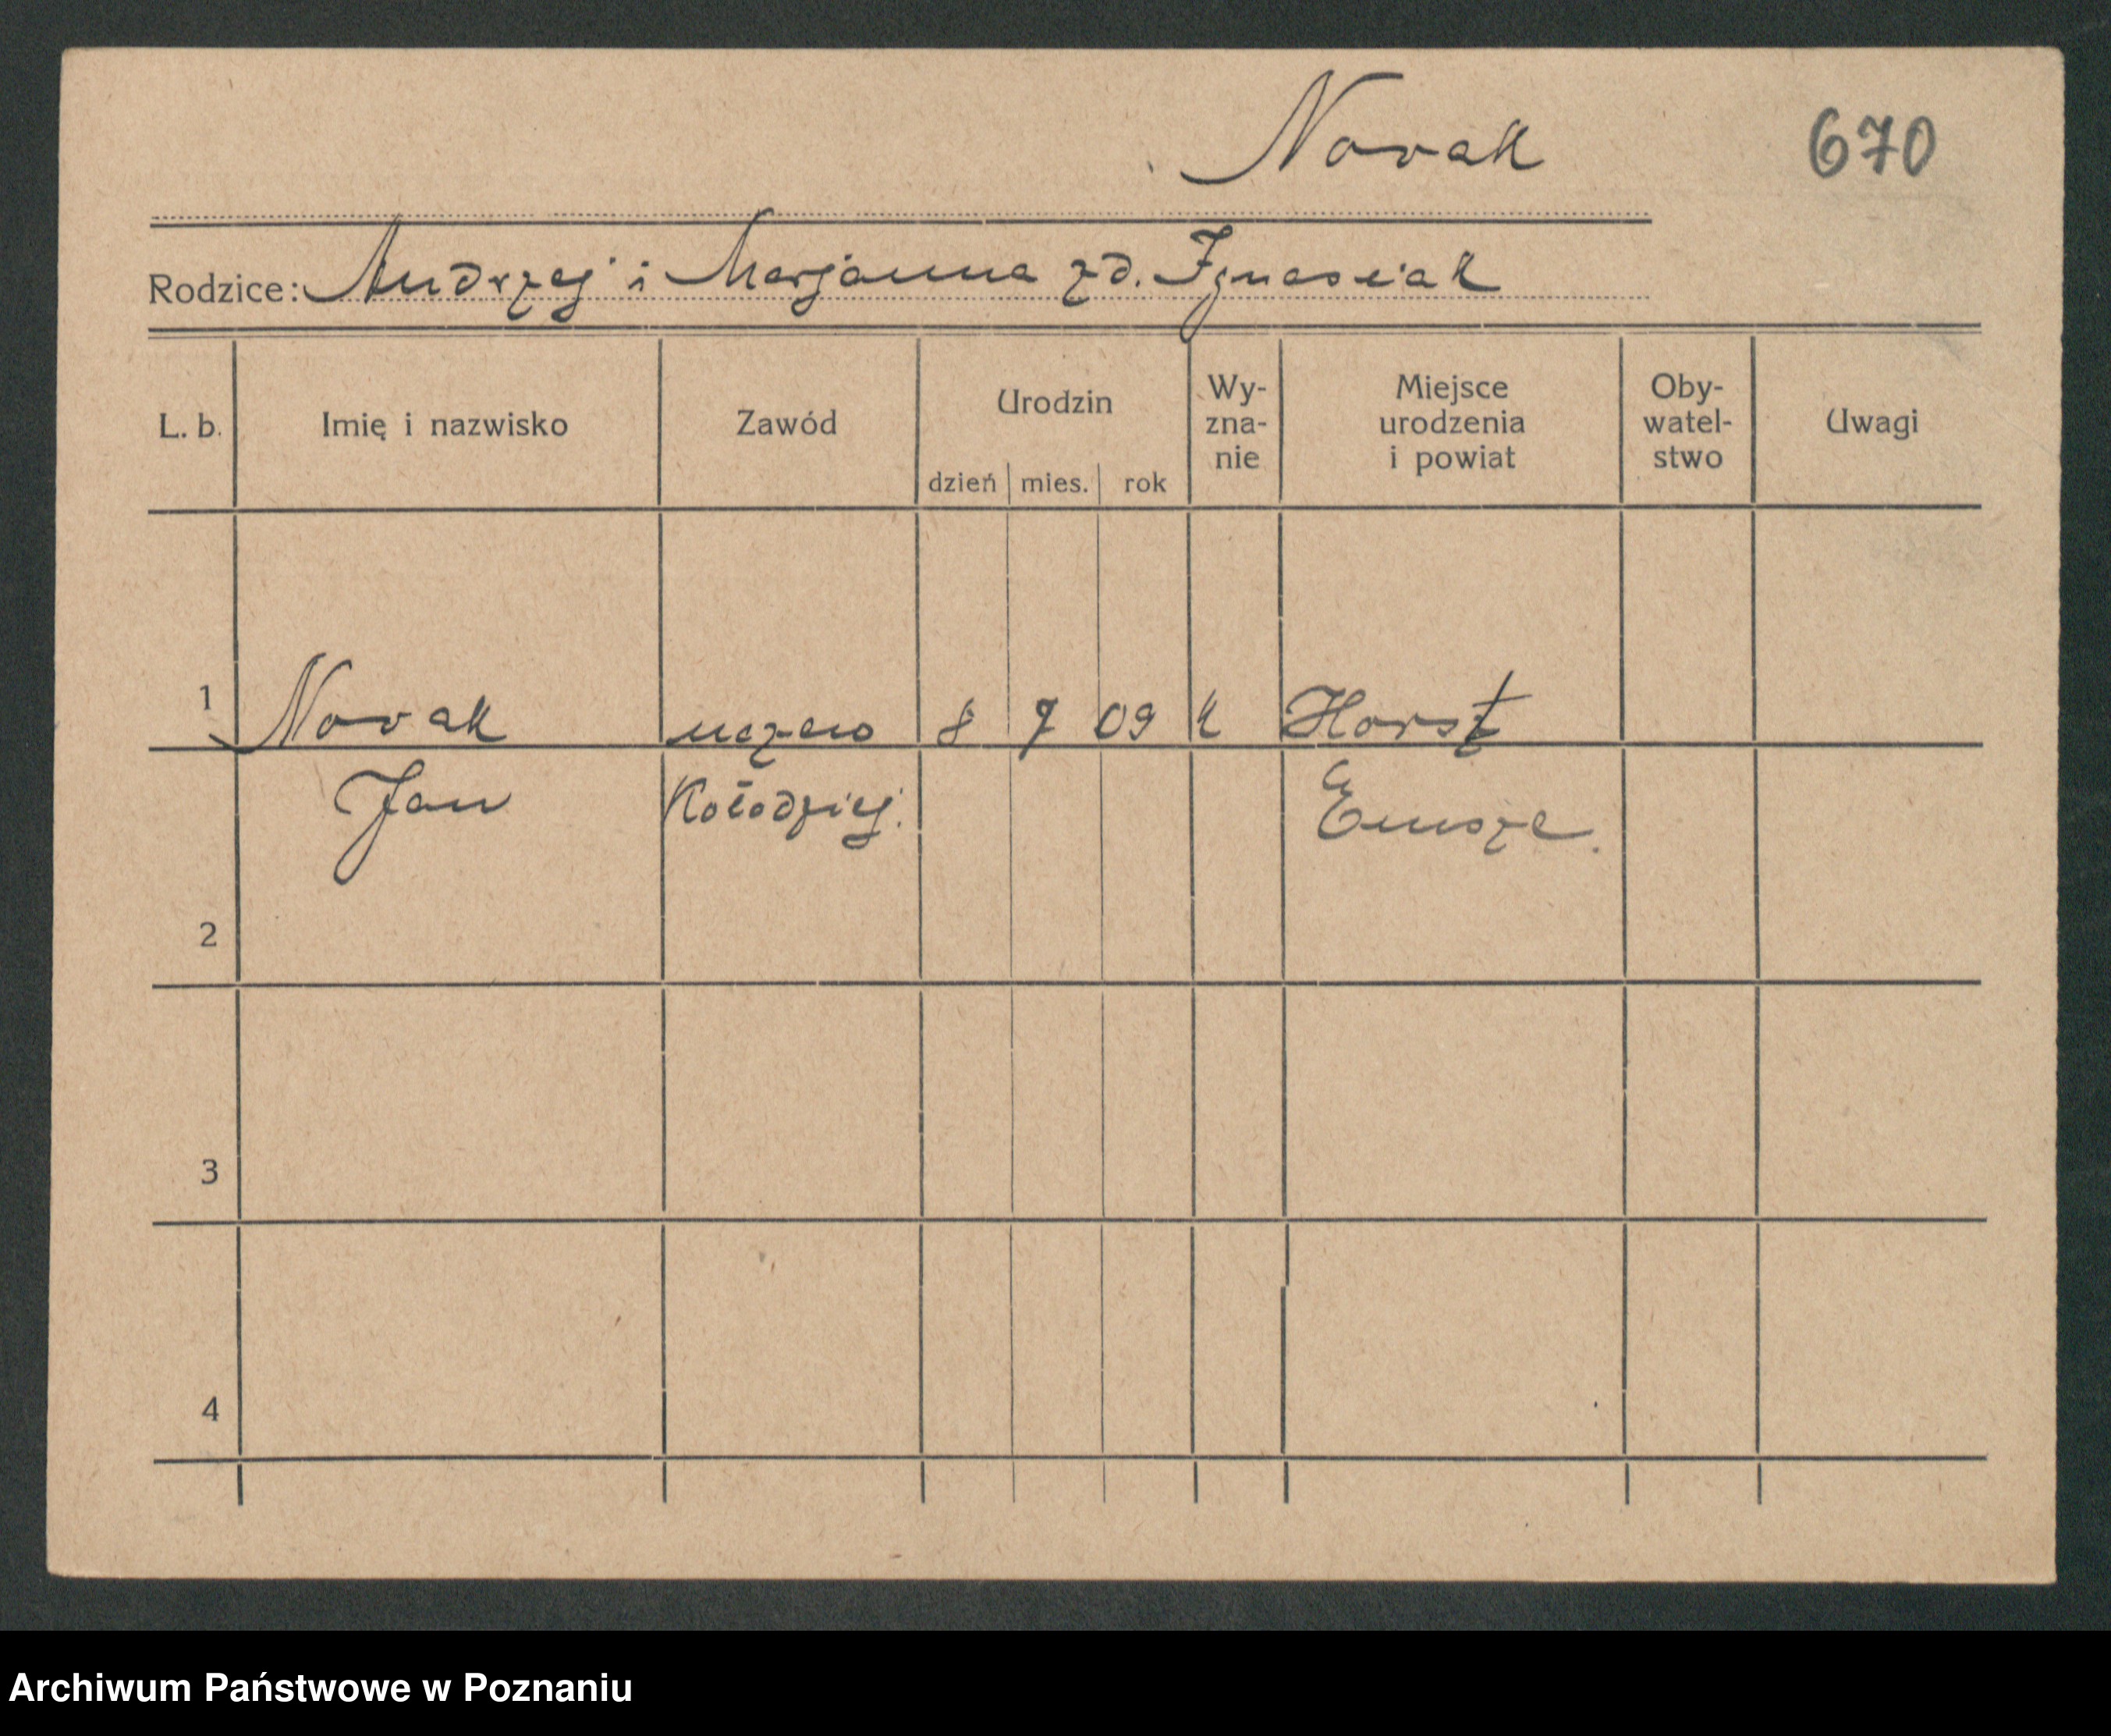 Novak
670
Rodzice: Andrzej i Marjanna zd. Ignasiak
L. b.
Imię i nazwisko
Zawód
Urodzin
dzień mies. rok
Wy-
zna-
nie
Miejsce
urodzenia
i powiat
Oby-
watel-
stwo
Uwagi
1 Novak uczeń 8 7 09 k Horst
Jan Kołodziej.
2
3
4
Archiwum Państwowe w Poznaniu